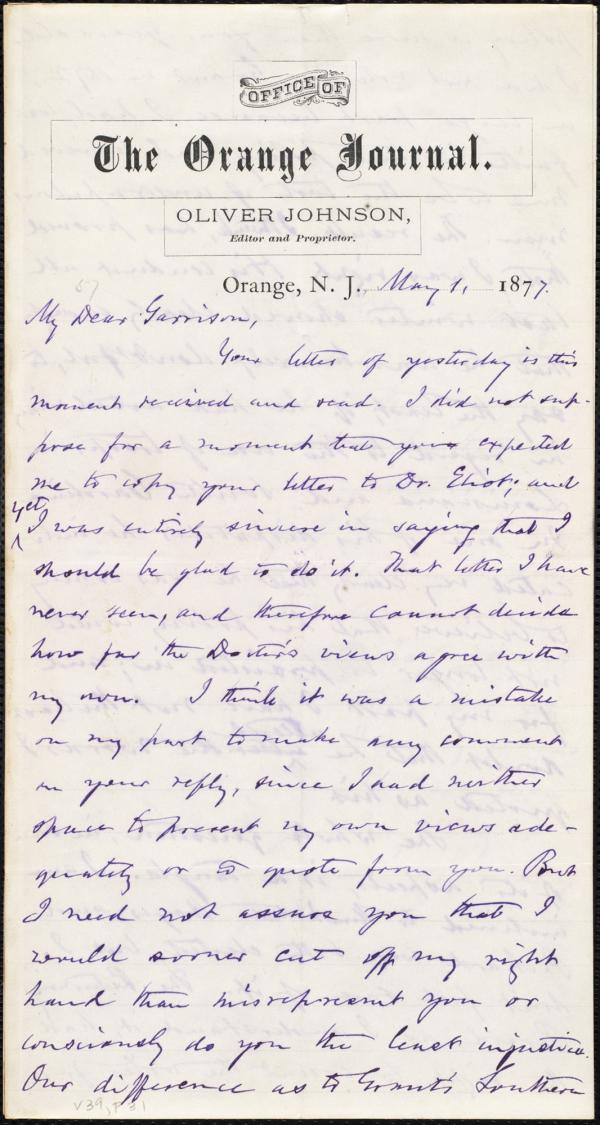 OFFICE OF
The Orange Journal.
OLIVER JOHNSON,
Editor and Proprietor.
Orange, N. J., May 1, 1877.
My Dear Garrison,
Your letter of yesterday is this
moment received and read. I did not sup-
pose for a moment that you expected
me to copy your letter to Dr. Eliot; and
yet
I was entirely sincere in saying that I
should be glad to do it. That letter I have
never seen, and therefore cannot decide
how far the Doctor's views agree with
my own. I think it was a mistake
on my part to make any comment
on your reply, since I had neither
space to present my own views ade-
quately or to quote from you. But
I need not assure you that I
would sooner cut off my right
hand than misrepresent you or
consciously do you the least injustice.
Our difference as to Grant's Southern
v39, p31